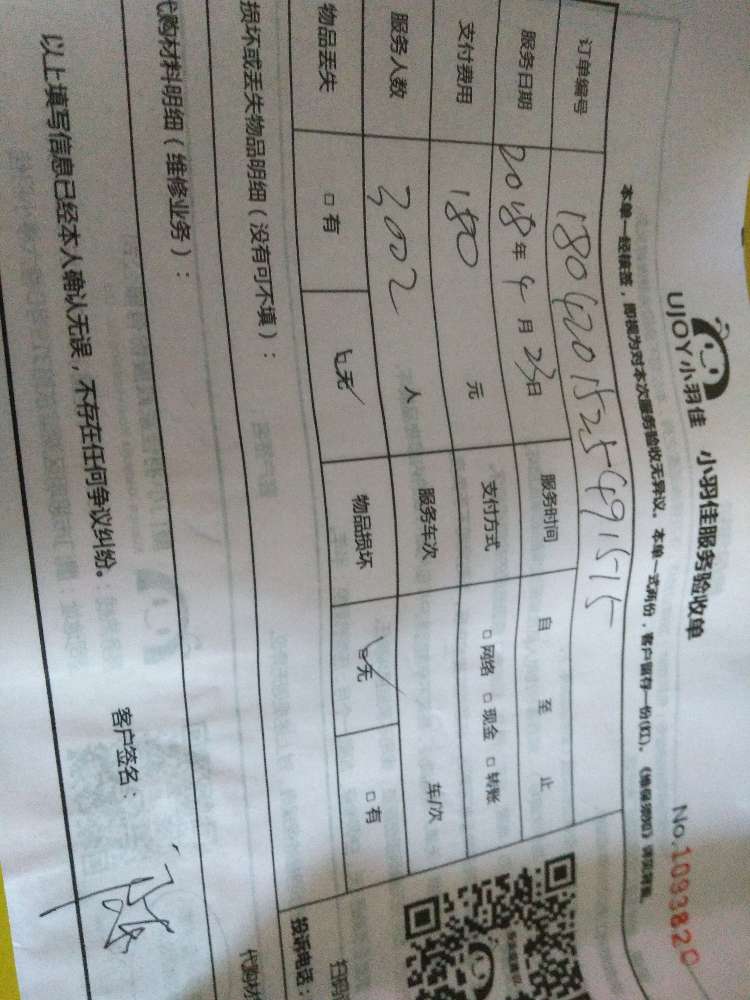 UJOY小羽佳 小羽佳服务验收单 No.1093820
本单一经接签，即视为对本次服务验收无异议。本单一式两份，客户留存一份(红)。
订单编号 1804201525491515
服务日期 2018年4月23日 服务时间 自 至 止
支付费用 180元 支付方式 □网络 □现金 □转账
服务人数 人 服务车次 车/次
物品丢失 □有 □无 物品损坏 □无 □有
损坏或丢失物品明细（没有可不填）：
投诉电话：
代购材料明细（维修业务）：
代购材
以上填写信息已经本人确认无误，不存在任何争议纠纷。 客户签名：